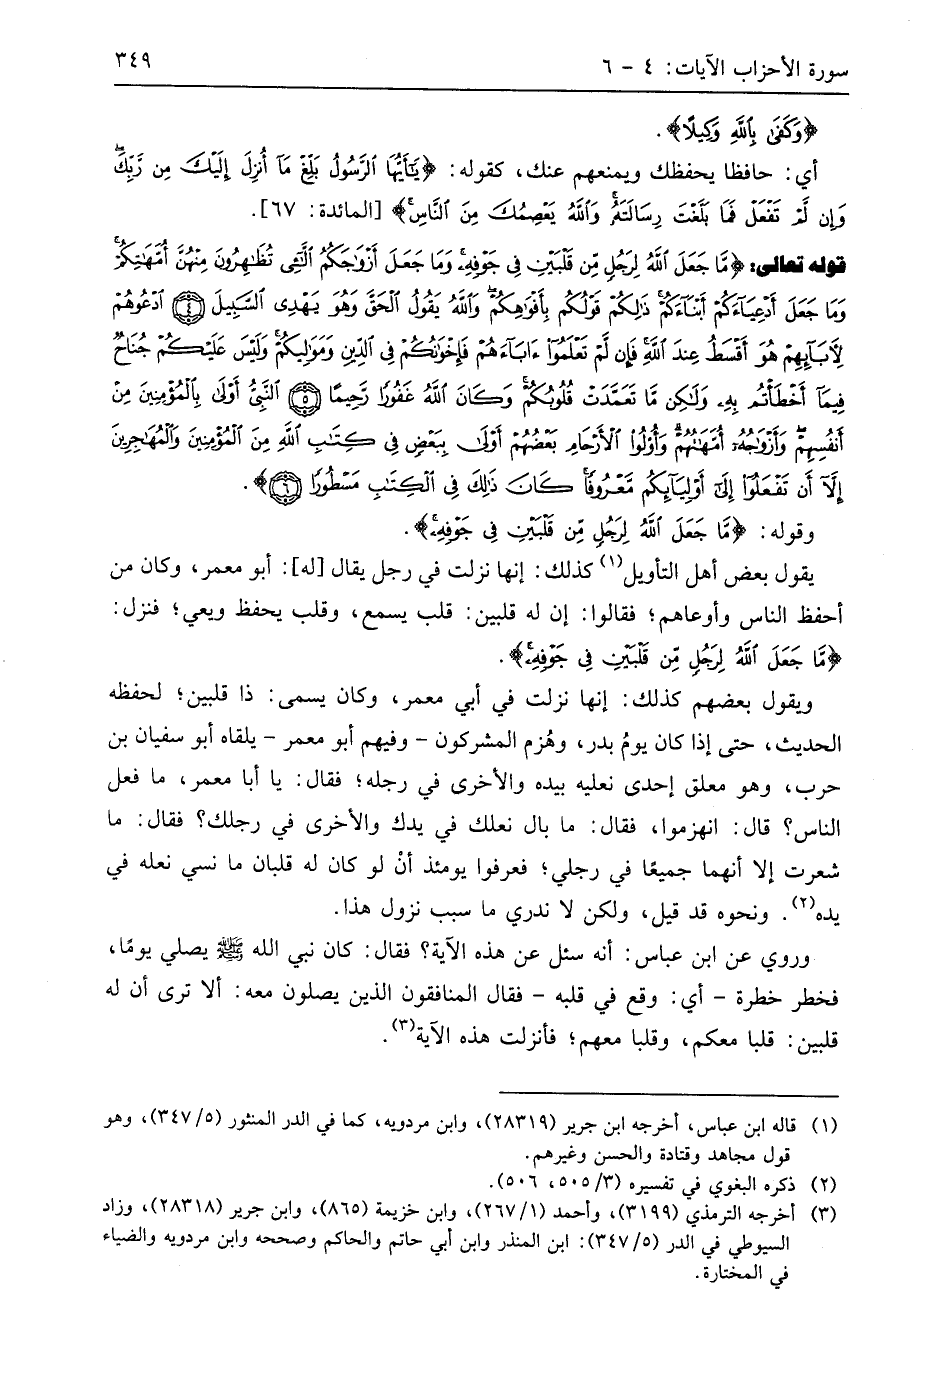 سورة الأحزاب الآيات: ٤ - ٦ ٣٤٩
﴿وَكَفَىٰ بِٱللَّهِ وَكِيلًا﴾.
أي: حافظا يحفظك ويمنعهم عنك، كقوله: ﴿يَٰٓأَيُّهَا ٱلرَّسُولُ بَلِّغْ مَآ أُنزِلَ إِلَيْكَ مِن رَّبِّكَۖ
وَإِن لَّمْ تَفْعَلْ فَمَا بَلَّغْتَ رِسَالَتَهُۥۚ وَٱللَّهُ يَعْصِمُكَ مِنَ ٱلنَّاسِۗ﴾ [المائدة: ٦٧].
قوله تعالى: ﴿مَّا جَعَلَ ٱللَّهُ لِرَجُلٍ مِّن قَلْبَيْنِ فِى جَوْفِهِۦۚ وَمَا جَعَلَ أَزْوَٰجَكُمُ ٱلَّٰٓـِٔى تُظَٰهِرُونَ مِنْهُنَّ أُمَّهَٰتِكُمْۚ
وَمَا جَعَلَ أَدْعِيَآءَكُمْ أَبْنَآءَكُمْۚ ذَٰلِكُمْ قَوْلُكُم بِأَفْوَٰهِكُمْۖ وَٱللَّهُ يَقُولُ ٱلْحَقَّ وَهُوَ يَهْدِى ٱلسَّبِيلَ ﴿٤﴾ ٱدْعُوهُمْ
لِأٓبَآئِهِمْ هُوَ أَقْسَطُ عِندَ ٱللَّهِۚ فَإِن لَّمْ تَعْلَمُوٓا۟ ءَابَآءَهُمْ فَإِخْوَٰنُكُمْ فِى ٱلدِّينِ وَمَوَٰلِيكُمْۚ وَلَيْسَ عَلَيْكُمْ جُنَاحٌ
فِيمَآ أَخْطَأْتُم بِهِۦ وَلَٰكِن مَّا تَعَمَّدَتْ قُلُوبُكُمْۚ وَكَانَ ٱللَّهُ غَفُورًا رَّحِيمًا ﴿٥﴾ ٱلنَّبِىُّ أَوْلَىٰ بِٱلْمُؤْمِنِينَ مِنْ
أَنفُسِهِمْۖ وَأَزْوَٰجُهُۥٓ أُمَّهَٰتُهُمْۗ وَأُو۟لُوا۟ ٱلْأَرْحَامِ بَعْضُهُمْ أَوْلَىٰ بِبَعْضٍ فِى كِتَٰبِ ٱللَّهِ مِنَ ٱلْمُؤْمِنِينَ وَٱلْمُهَٰجِرِينَ
إِلَّآ أَن تَفْعَلُوٓا۟ إِلَىٰٓ أَوْلِيَآئِكُم مَّعْرُوفًاۚ كَانَ ذَٰلِكَ فِى ٱلْكِتَٰبِ مَسْطُورًا ﴿٦﴾﴾.
وقوله: ﴿مَّا جَعَلَ ٱللَّهُ لِرَجُلٍ مِّن قَلْبَيْنِ فِى جَوْفِهِۦۚ﴾.
يقول بعض أهل التأويل(١) كذلك: إنها نزلت في رجل يقال [له]: أبو معمر، وكان من
أحفظ الناس وأوعاهم؛ فقالوا: إن له قلبين: قلب يسمع، وقلب يحفظ ويعي؛ فنزل:
﴿مَّا جَعَلَ ٱللَّهُ لِرَجُلٍ مِّن قَلْبَيْنِ فِى جَوْفِهِۦۚ﴾.
ويقول بعضهم كذلك: إنها نزلت في أبي معمر، وكان يسمى: ذا قلبين؛ لحفظه
الحديث، حتى إذا كان يومُ بدر، وهُزم المشركون - وفيهم أبو معمر - يلقاه أبو سفيان بن
حرب، وهو معلق إحدى نعليه بيده والأخرى في رجله؛ فقال: يا أبا معمر، ما فعل
الناس؟ قال: انهزموا، فقال: ما بال نعلك في يدك والأخرى في رجلك؟ فقال: ما
شعرت إلا أنهما جميعًا في رجلي؛ فعرفوا يومئذ أنْ لو كان له قلبان ما نسي نعله في
يده(٢). ونحوه قد قيل، ولكن لا ندري ما سبب نزول هذا.
وروي عن ابن عباس: أنه سئل عن هذه الآية؟ فقال: كان نبي الله ﷺ يصلي يومًا،
فخطر خطرة - أي: وقع في قلبه - فقال المنافقون الذين يصلون معه: ألا ترى أن له
قلبين: قلبا معكم، وقلبا معهم؛ فأنزلت هذه الآية(٣).
(١) قاله ابن عباس، أخرجه ابن جرير (٢٨٣١٩)، وابن مردويه، كما في الدر المنثور (٥/٣٤٧)، وهو
قول مجاهد وقتادة والحسن وغيرهم.
(٢) ذكره البغوي في تفسيره (٣/٥٠٥، ٥٠٦).
(٣) أخرجه الترمذي (٣١٩٩)، وأحمد (١/٢٦٧)، وابن خزيمة (٨٦٥)، وابن جرير (٢٨٣١٨)، وزاد
السيوطي في الدر (٥/٣٤٧): ابن المنذر وابن أبي حاتم والحاكم وصححه وابن مردويه والضياء
في المختارة.